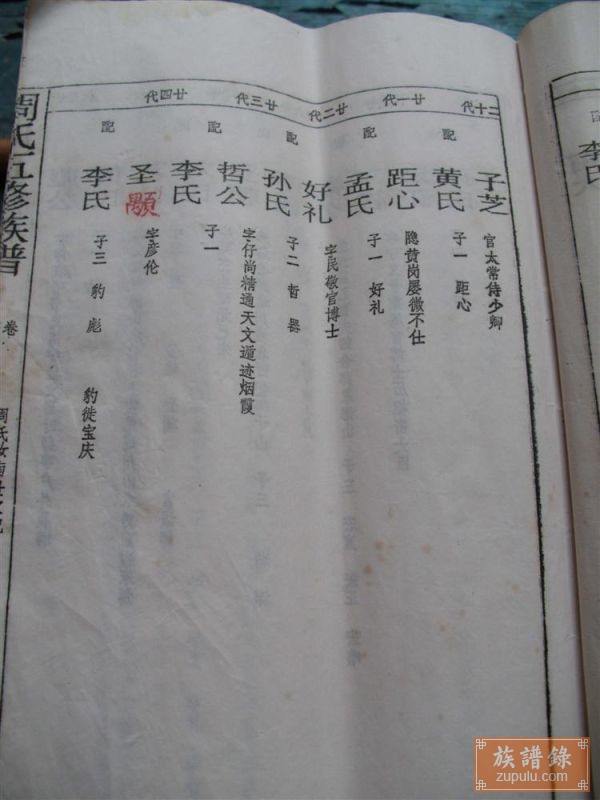 配 李氏
二十代
子芝 官太常侍少卿
配 黄氏 子一 距心
廿一代
距心 隐黄岗屡徵不仕
配 孟氏 子一 好礼
廿二代
好礼 字民敬官博士
配 孙氏 子二 哲 器
廿三代
哲公 字仔尚精通天文遁迹烟霞
配 李氏 子一
廿四代
圣顒 字彦伦
配 李氏 子三 豹 彪 豹徙宝庆
周氏五修族谱 卷
族譜錄
zupulu.com